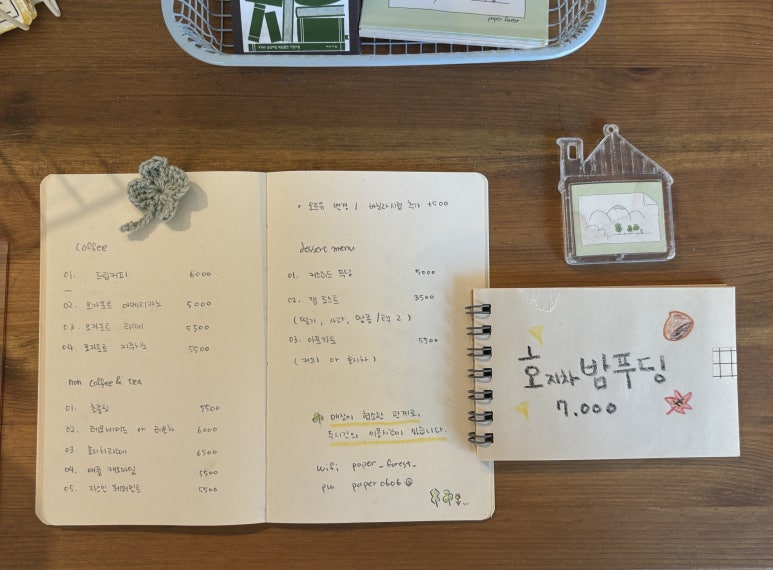 paper forest
coffee
01. 드립커피 6000
02. 모카포트 아메리카노 5000
03. 모카포트 라떼 5500
04. 모카포트 5500
non coffee & tea
01. 초콜릿 5500
02. 레몬에이드 or 레몬차 6000
03 호지차라떼 6500
04. 애플 캐모마일 5500
05. 자스민 페퍼민트 5500
• 오트유 변경 / 바닐라시럽 추가 +500
dessert menu
01. 커스터드 푸딩 5000
02. 잼 토스트 3500
(딸기, 사과, 땅콩 / 택 2)
03. 아포가토 5500
(커피 or 호지차)
매장이 협소한 관계로,
두시간의 이용시간이 있습니다.
wifi paper_forest_
pw paper0606@
호지차 밤푸딩
7,000